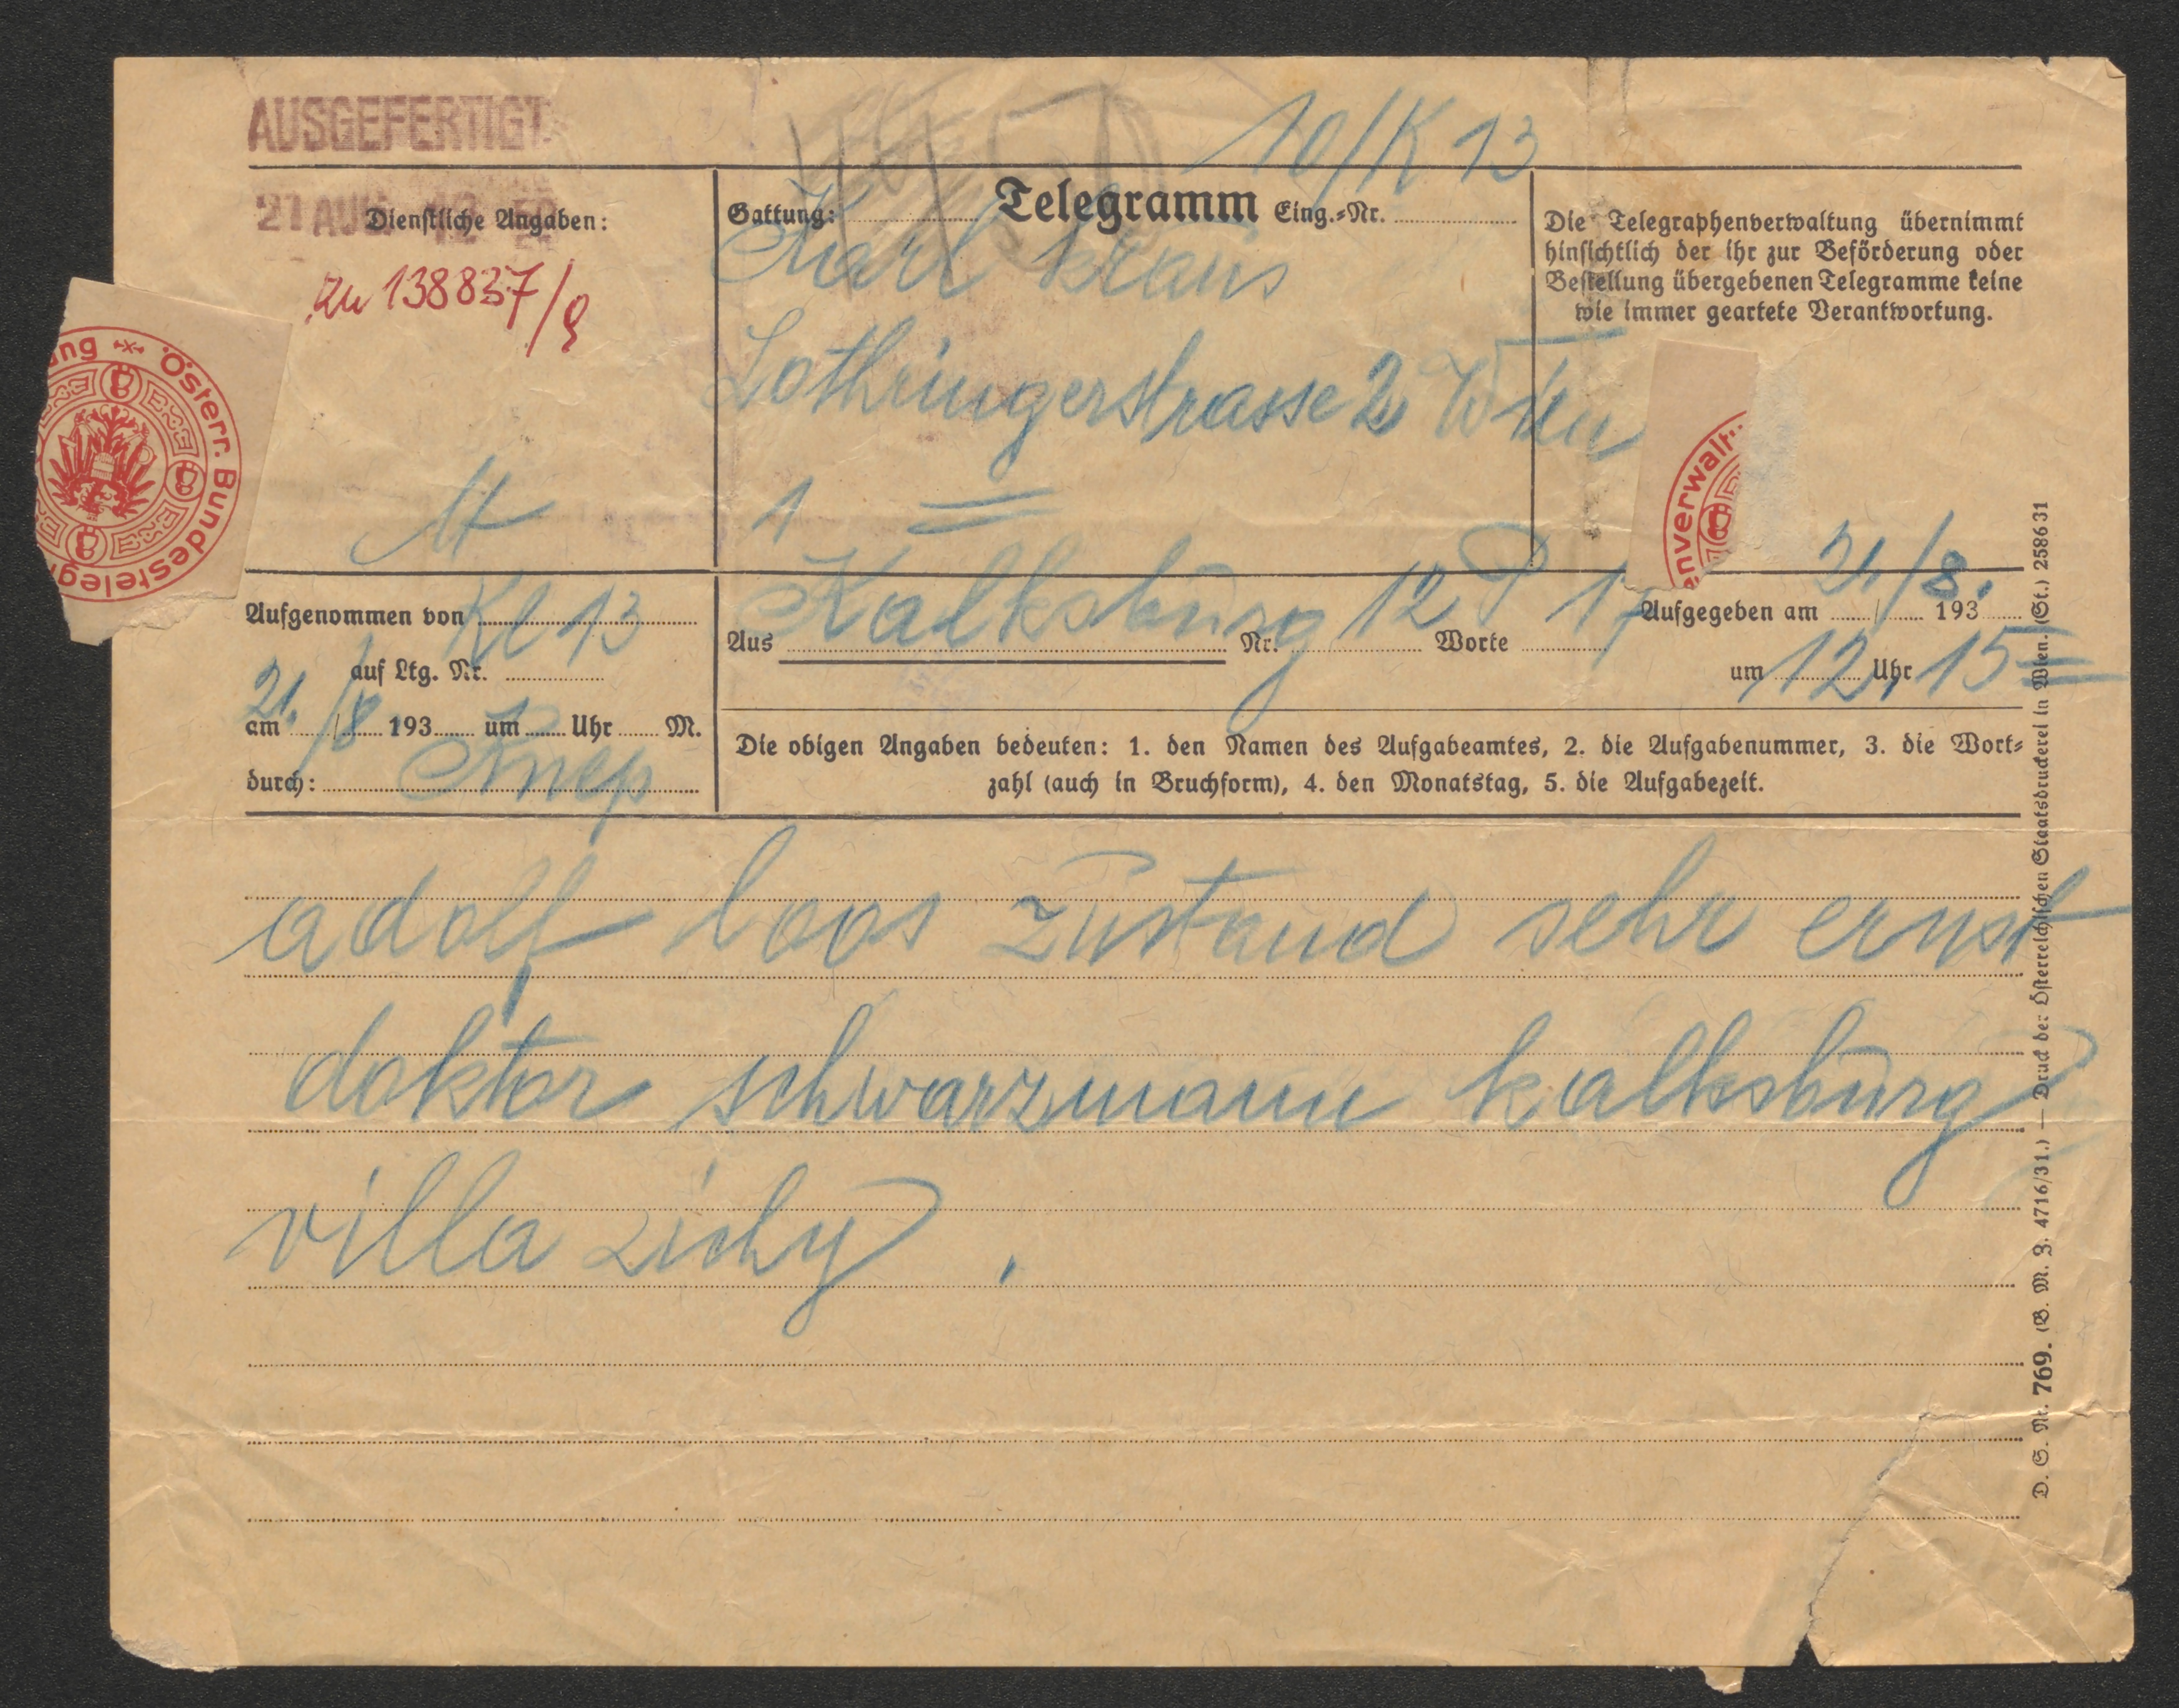 AUSGEFERTIGT
10/K 13
21 AUG
Dienstliche Angaben:
zu 138837/9
Gattung: Telegramm Eing.-Nr.
Karl Kraus
Lothringerstrasse 2 Wien
1 =
Die Telegraphenverwaltung übernimmt
hinsichtlich der ihr zur Beförderung oder
Bestellung übergebenen Telegramme keine
wie immer geartete Verantwortung.
ung Österr. Bundestelegr
enverwalt
Aufgenommen von Kl 13
auf Ltg. Nr.
21./8
am / 193 um Uhr M.
durch:
Aus Kalksburg Nr. 12 P Worte 17
Aufgegeben am 21./8. 193
um 12 Uhr 15 =
Die obigen Angaben bedeuten: 1. den Namen des Aufgabeamtes, 2. die Aufgabenummer, 3. die Wort-
zahl (auch in Bruchform), 4. den Monatstag, 5. die Aufgabezeit.
adolf loos zustand sehr ernst
doktor schwarzmann kalksburg
villa zichy .
D. S. Nr. 769. (B. M. Z. 4716/31.) — Druck der Österreichischen Staatsdruckerei in Wien. (St.) 2586 31